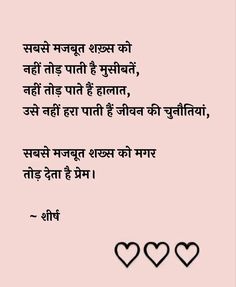 सबसे मजबूत शख़्स को
नहीं तोड़ पाती है मुसीबतें,
नहीं तोड़ पाते हैं हालात,
उसे नहीं हरा पाती हैं जीवन की चुनौतियां,
सबसे मजबूत शख्स को मगर
तोड़ देता है प्रेम।
~ शीर्ष